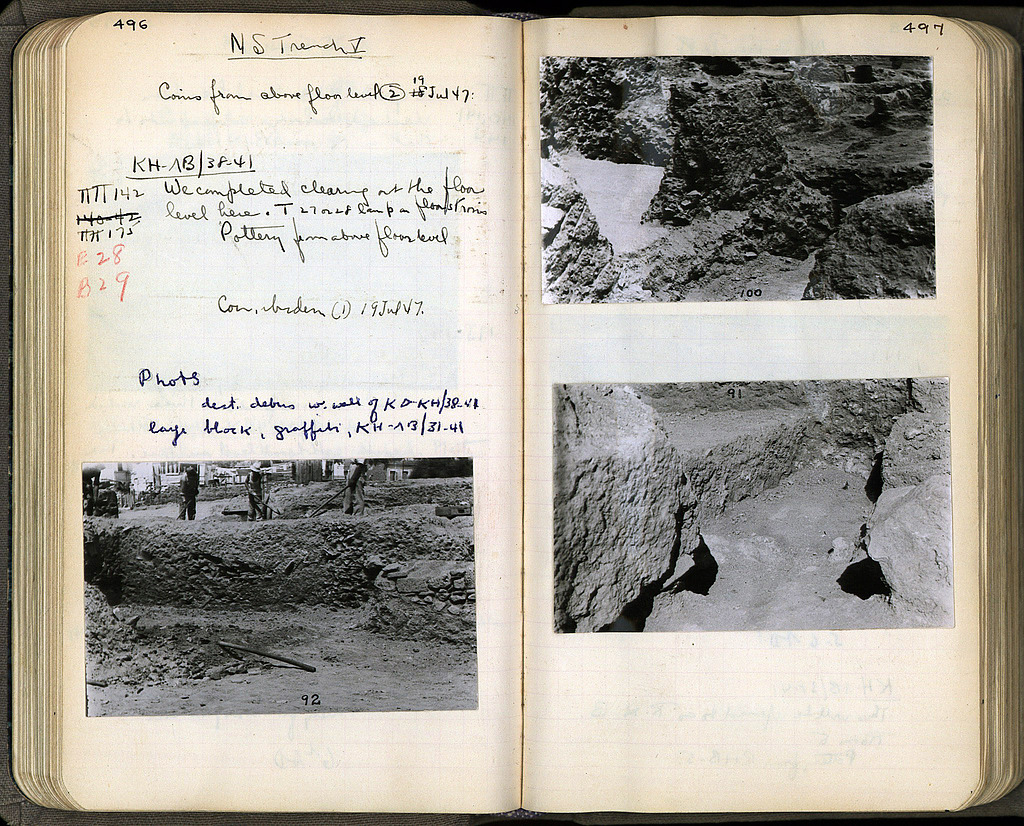 496
NS Trench V
Coins from above floor level (2) 19 Jul 47:
KH-ΛB/38-41
ΠΠ 142 We completed clearing out the floor
140-42 level here. T 27 or 28 lamp on floor
ΠΠ 175 Pottery from above floor level
B 28
B 29
Coin, (1) 19 Jul 47.
Phots
dest. debris w. wall of KΔ-KH/38-41
large block, graffiti, KH-ΛB/31-41
92
497
100
91